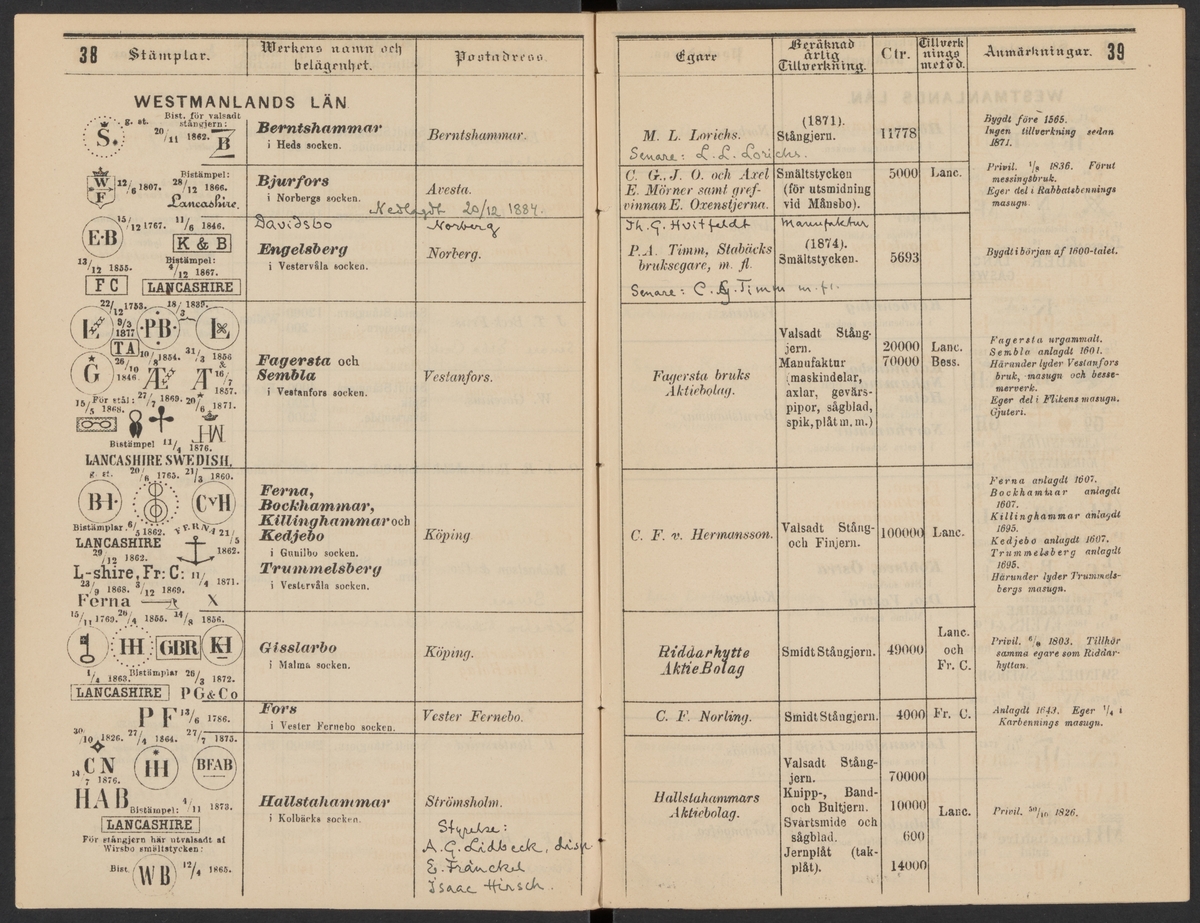 38 Stämplar.
Werkens namn och
belägenhet.
Postadress.
WESTMANLANDS LÄN
g. st.
Bist. för valsadt
stångjern:
S.
20/11 1862.
B
Berntshammar
i Heds socken.
Berntshammar.
W
F
12/6 1807.
Bistämpel:
28/12 1866.
Lancashire.
Bjurfors
i Norbergs socken.
Avesta.
Nedlagdt 20/12 1884.
15/12 1767.
11/6 1846.
E·B
K & B
Davidsbo
Norberg
13/12 1855.
Bistämpel:
4/12 1867.
F C
LANCASHIRE
Engelsberg
i Vestervåla socken.
Norberg.
22/12 1753.
18/3 1839.
L
9/3
1877
·PB·
L
TA
10/8 1854.
31/3 1856
&
G
26/10
1846
Æ
Æ
16/7
1857.
För stål:
15/5 1868.
27/7 1869.
20/6 1871.
HM
Bistämpel 11/4 1876.
LANCASHIRE SWEDISH.
Fagersta och
Sembla
i Vestanfors socken.
Vestanfors.
g. st.
20/6 1765.
21/3 1860.
BH·
CvH
Bistämplar 6/5 1862.
FERNA
21/5
1862.
LANCASHIRE
29/12 1862.
L-shire, Fr: C:
11/4 1871.
23/9 1868.
3/12 1869.
Ferna
X
Ferna,
Bockhammar,
Killinghammar och
Kedjebo
i Gunilbo socken.
Trummelsberg
i Vestervåla socken.
Köping
15/11 1769.
26/4 1855.
14/8 1856.
HH
GBR
KH
1/4 1863.
Bistämplar 26/3 1872.
LANCASHIRE
PG&Co
Gisslarbo
i Malma socken.
Köping.
PF
13/6 1786.
Fors
i Vester Fernebo socken.
Vester Fernebo.
30/10 1826.
27/4 1864.
27/7 1875.
CN
HH
BFAB
14/7 1876.
HAB
Bistämpel: 4/11 1873.
LANCASHIRE
För stångjern här utvalsadt af
Wirsbo smältstycken:
Bist.
WB
12/4 1865.
Hallstahammar
i Kolbäcks socken.
Strömsholm.
Styrelse:
A. G. Lidbeck, disp
E. Fränckel
Isaac Hirsch.
Egare
Beräknad
årlig
Tillverkning.
Ctr.
Tillverk
nings
metod.
Anmärkningar. 39
M. L. Lorichs.
Senare: L. L. Lorichs.
(1871).
Stångjern.
11778
Bygdt före 1565.
Ingen tillverkning sedan
1871.
C. G., J. O. och Axel
E. Mörner samt gref-
vinnan E. Oxenstjerna.
Smältstycken
(för utsmidning
vid Månsbo).
5000
Lanc.
Privil. 1/8 1836. Förut
messingsbruk.
Eger del i Rabbalsbennings
masugn.
Th. G. Hvitfeldt
Manufaktur
P. A. Timm, Stabäcks
bruksegare, m. fl.
Senare: C. G. Timm m. fl.
(1874).
Smältstycken.
5693
Bygdt i början af 1600-talet.
Fagersta bruks
Aktiebolag.
Valsadt Stång-
jern.
20000
Lanc.
Manufaktur
70000
Bess.
(maskindelar,
axlar, gevärs-
pipor, sågblad,
spik, plåt m. m.)
Fagersta urgammalt.
Sembla anlagdt 1601.
Härunder lyder Vestanfors
bruk, masugn och besse-
merverk.
Eger del i Flikens masugn.
Gjuteri.
C. F. v. Hermansson.
Valsadt Stång-
och Finjern.
100000
Lanc.
Ferna anlagdt 1607.
Bockhammar anlagdt
1607.
Killinghammar anlagdt
1695.
Kedjebo anlagdt 1607.
Trummelsberg anlagdt
1695.
Härunder lyder Trummels-
bergs masugn.
Riddarhytte
AktieBolag
Smidt Stångjern.
49000
Lanc.
och
Fr. C.
Privil. 6/8 1803. Tillhör
samma egare som Riddar-
hyttan.
C. F. Norling.
Smidt Stångjern.
4000
Fr. C.
Anlagdt 1643. Eger 1/4 i
Karbennings masugn.
Hallstahammars
Aktiebolag.
Valsadt Stång-
jern.
70000
Knipp-, Band-
och Bultjern.
10000
Lanc.
Svartsmide och
sågblad.
600
Jernplåt (tak-
plåt).
14000
Privil. 30/10 1826.